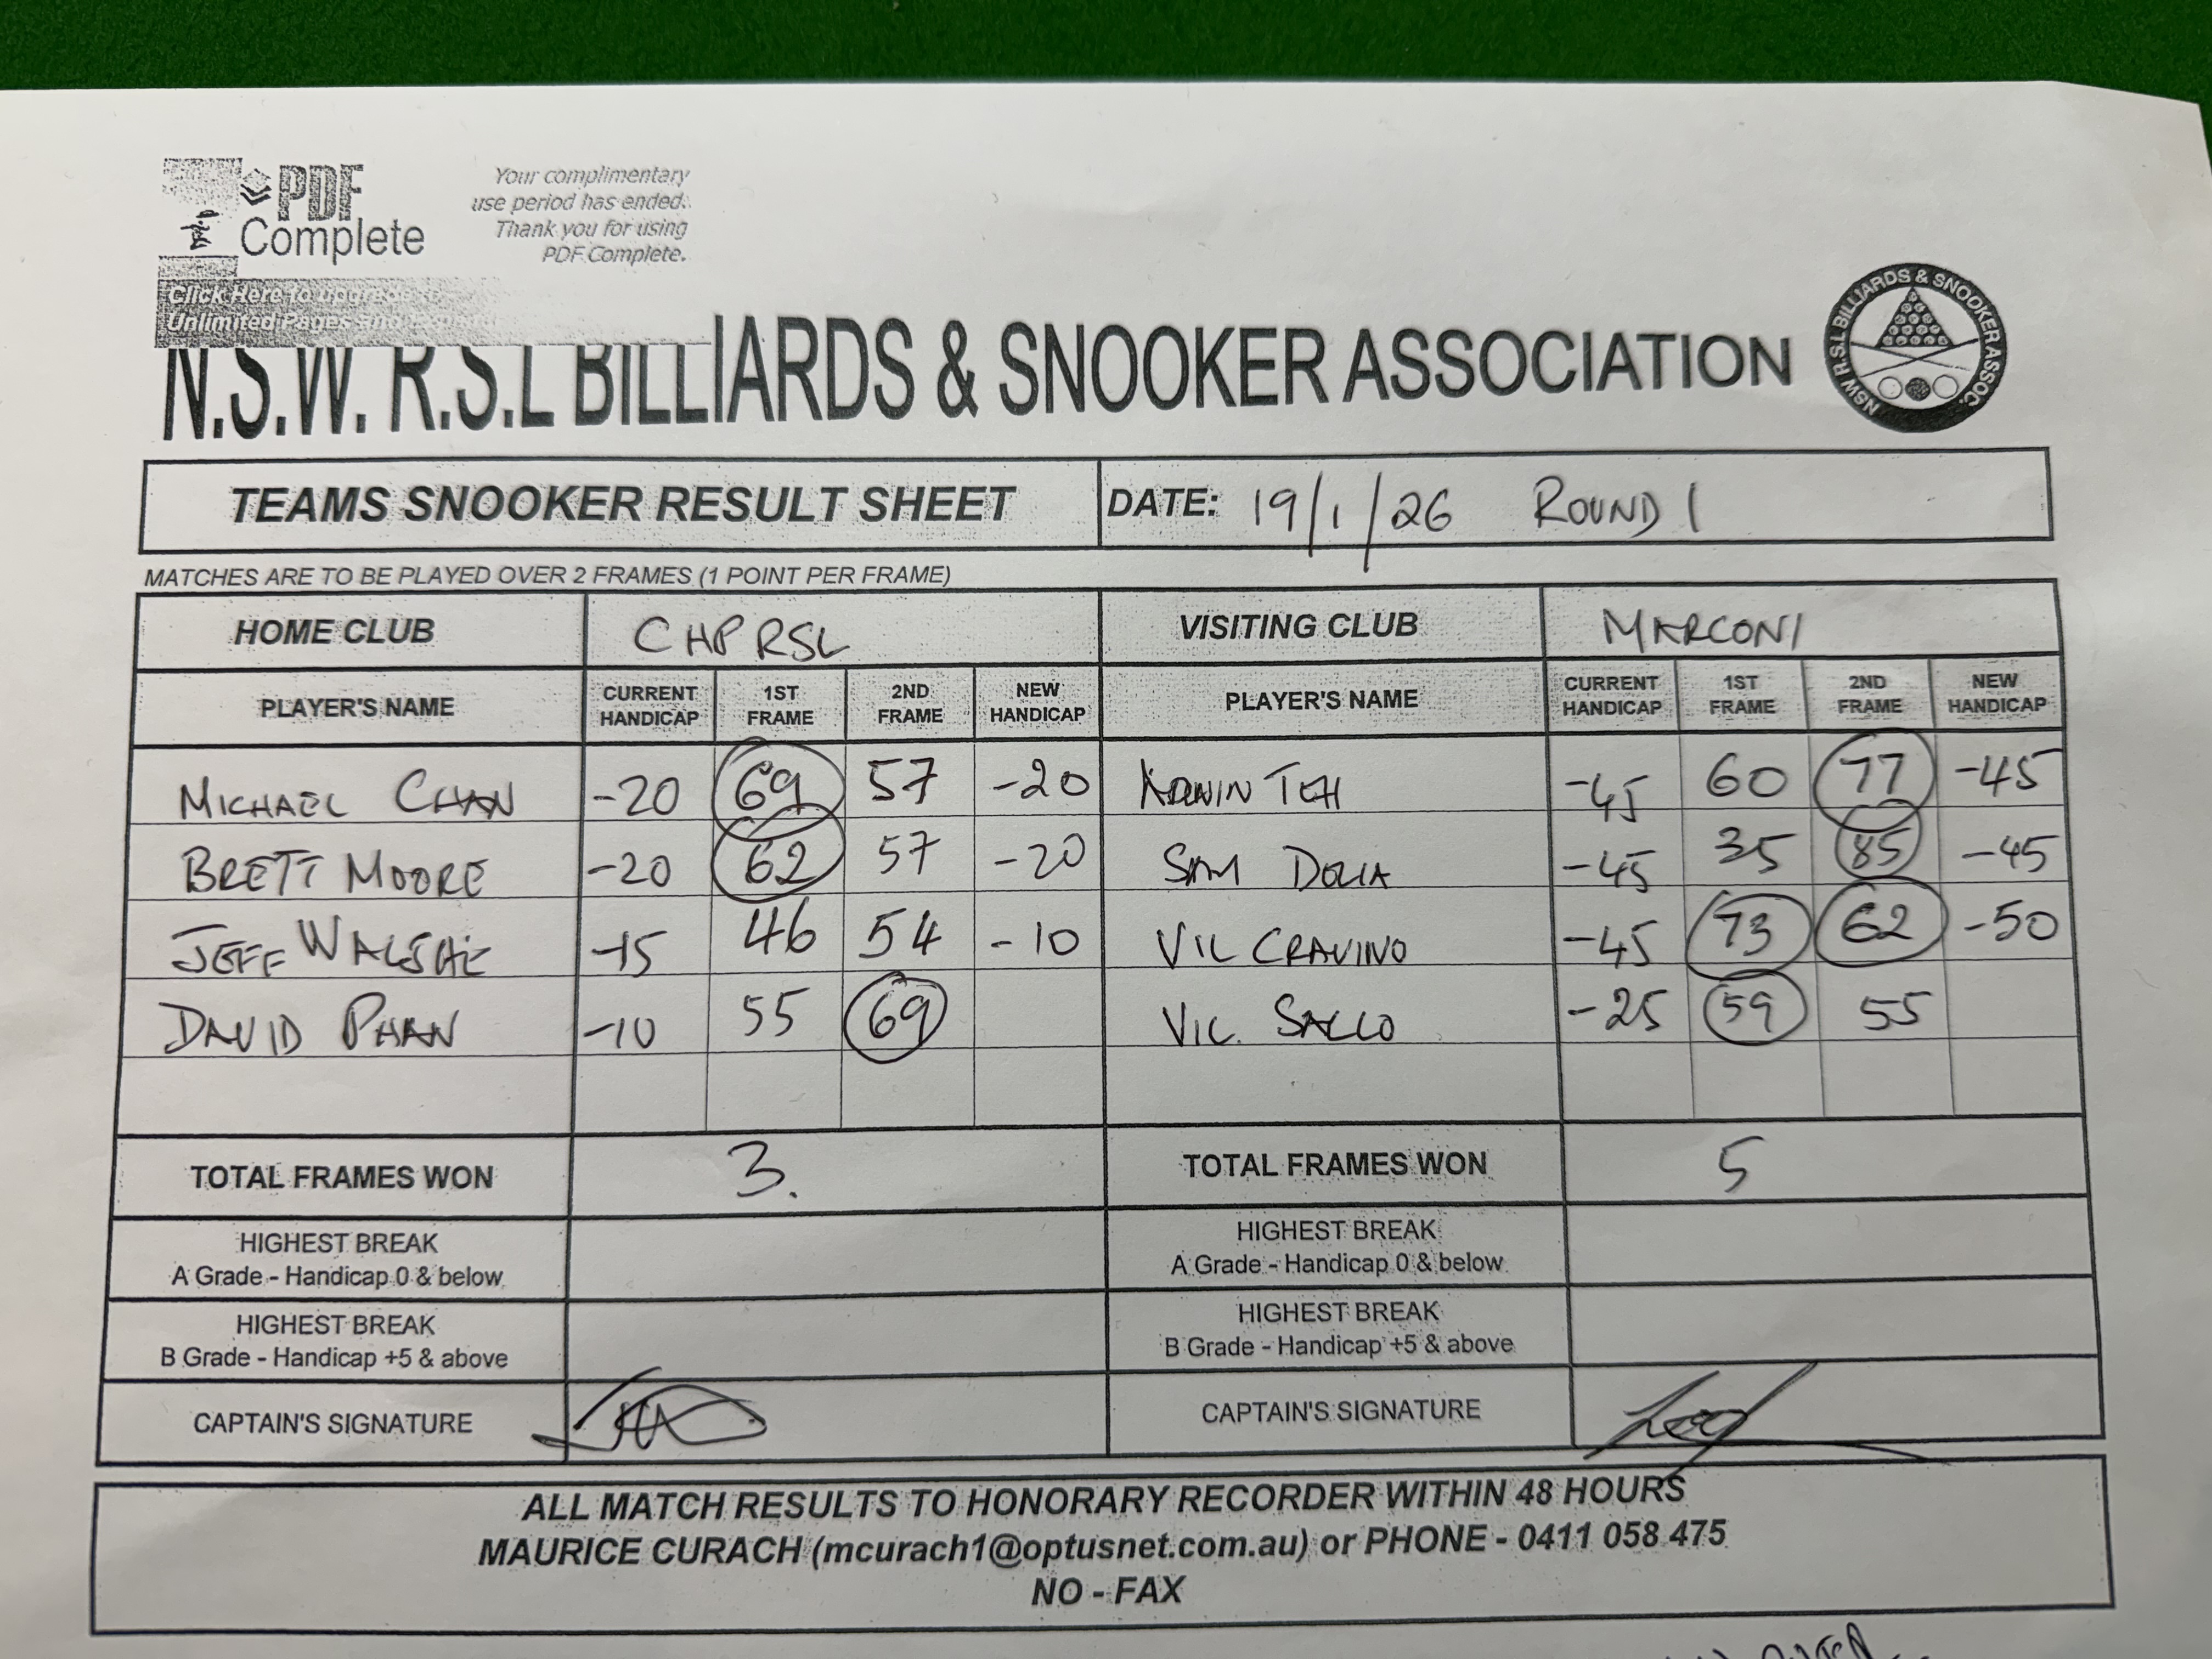 PDF
Complete
Your complimentary
use period has ended.
Thank you for using
PDF Complete.
Click Here to upgrade to
Unlimited Pages and
N.S.W. R.S.L BILLIARDS & SNOOKER ASSOCIATION
NSW R.S.L BILLIARDS & SNOOKER ASSOC.
TEAMS SNOOKER RESULT SHEET DATE: 19/1/26 ROUND 1
MATCHES ARE TO BE PLAYED OVER 2 FRAMES (1 POINT PER FRAME)
HOME CLUB CHP RSL VISITING CLUB MARCONI
PLAYER'S NAME CURRENT HANDICAP 1ST FRAME 2ND FRAME NEW HANDICAP PLAYER'S NAME CURRENT HANDICAP 1ST FRAME 2ND FRAME NEW HANDICAP
MICHAEL CHAN -20 69 57 -20 TEH -45 60 77 -45
BRETT MOORE -20 62 57 -20 SAM -45 35 85 -45
JEFF -15 46 54 -10 VIC CRAVINO -45 73 62 -50
DAVID PHAN -10 55 69 VIC. SALLO -25 59 55
TOTAL FRAMES WON 3. TOTAL FRAMES WON 5
HIGHEST BREAK HIGHEST BREAK
A Grade - Handicap 0 & below A Grade - Handicap 0 & below
HIGHEST BREAK HIGHEST BREAK
B Grade - Handicap +5 & above B Grade - Handicap +5 & above
CAPTAIN'S SIGNATURE CAPTAIN'S SIGNATURE
ALL MATCH RESULTS TO HONORARY RECORDER WITHIN 48 HOURS
MAURICE CURACH (mcurach1@optusnet.com.au) or PHONE - 0411 058 475
NO - FAX